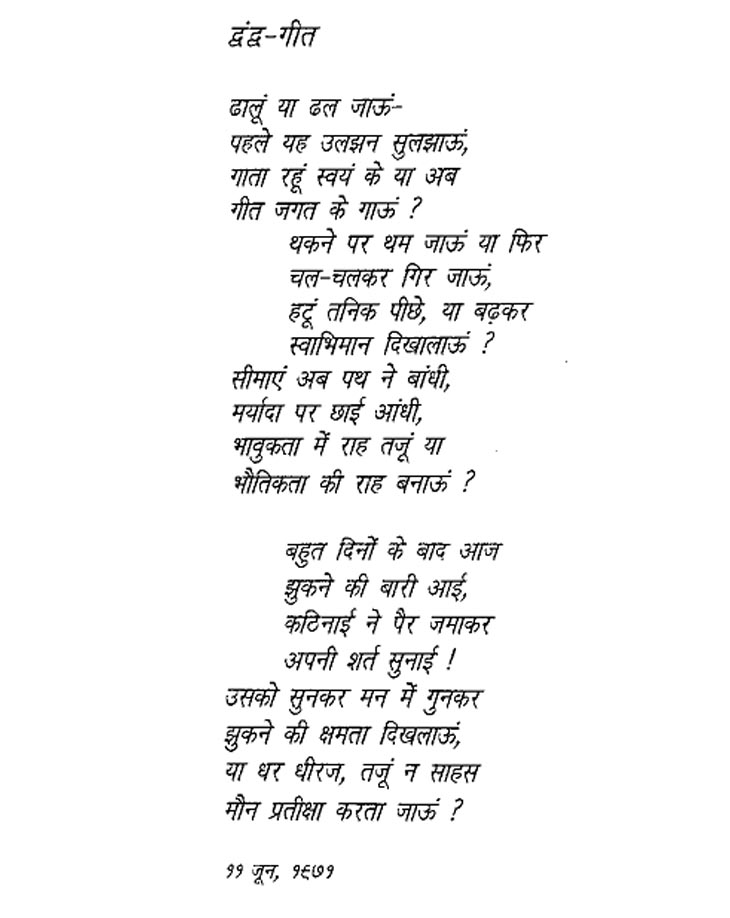 द्वंद्व-गीत
ढालूं या ढल जाऊं-
पहले यह उलझन सुलझाऊं,
गाता रहूं स्वयं के या अब
गीत जगत के गाऊं ?
थकने पर थम जाऊं या फिर
चल-चलकर गिर जाऊं,
हटूं तनिक पीछे, या बढ़कर
स्वाभिमान दिखालाऊं ?
सीमाएं अब पथ ने बांधी,
मर्यादा पर छाई आंधी,
भावुकता में राह तजूं या
भौतिकता की राह बनाऊं ?
बहुत दिनों के बाद आज
झुकने की बारी आई,
कठिनाई ने पैर जमाकर
अपनी शर्त सुनाई !
उसको सुनकर मन में गुनकर
झुकने की क्षमता दिखलाऊं,
या धर धीरज, तजूं न साहस
मौन प्रतीक्षा करता जाऊं ?
११ जून, १९७१